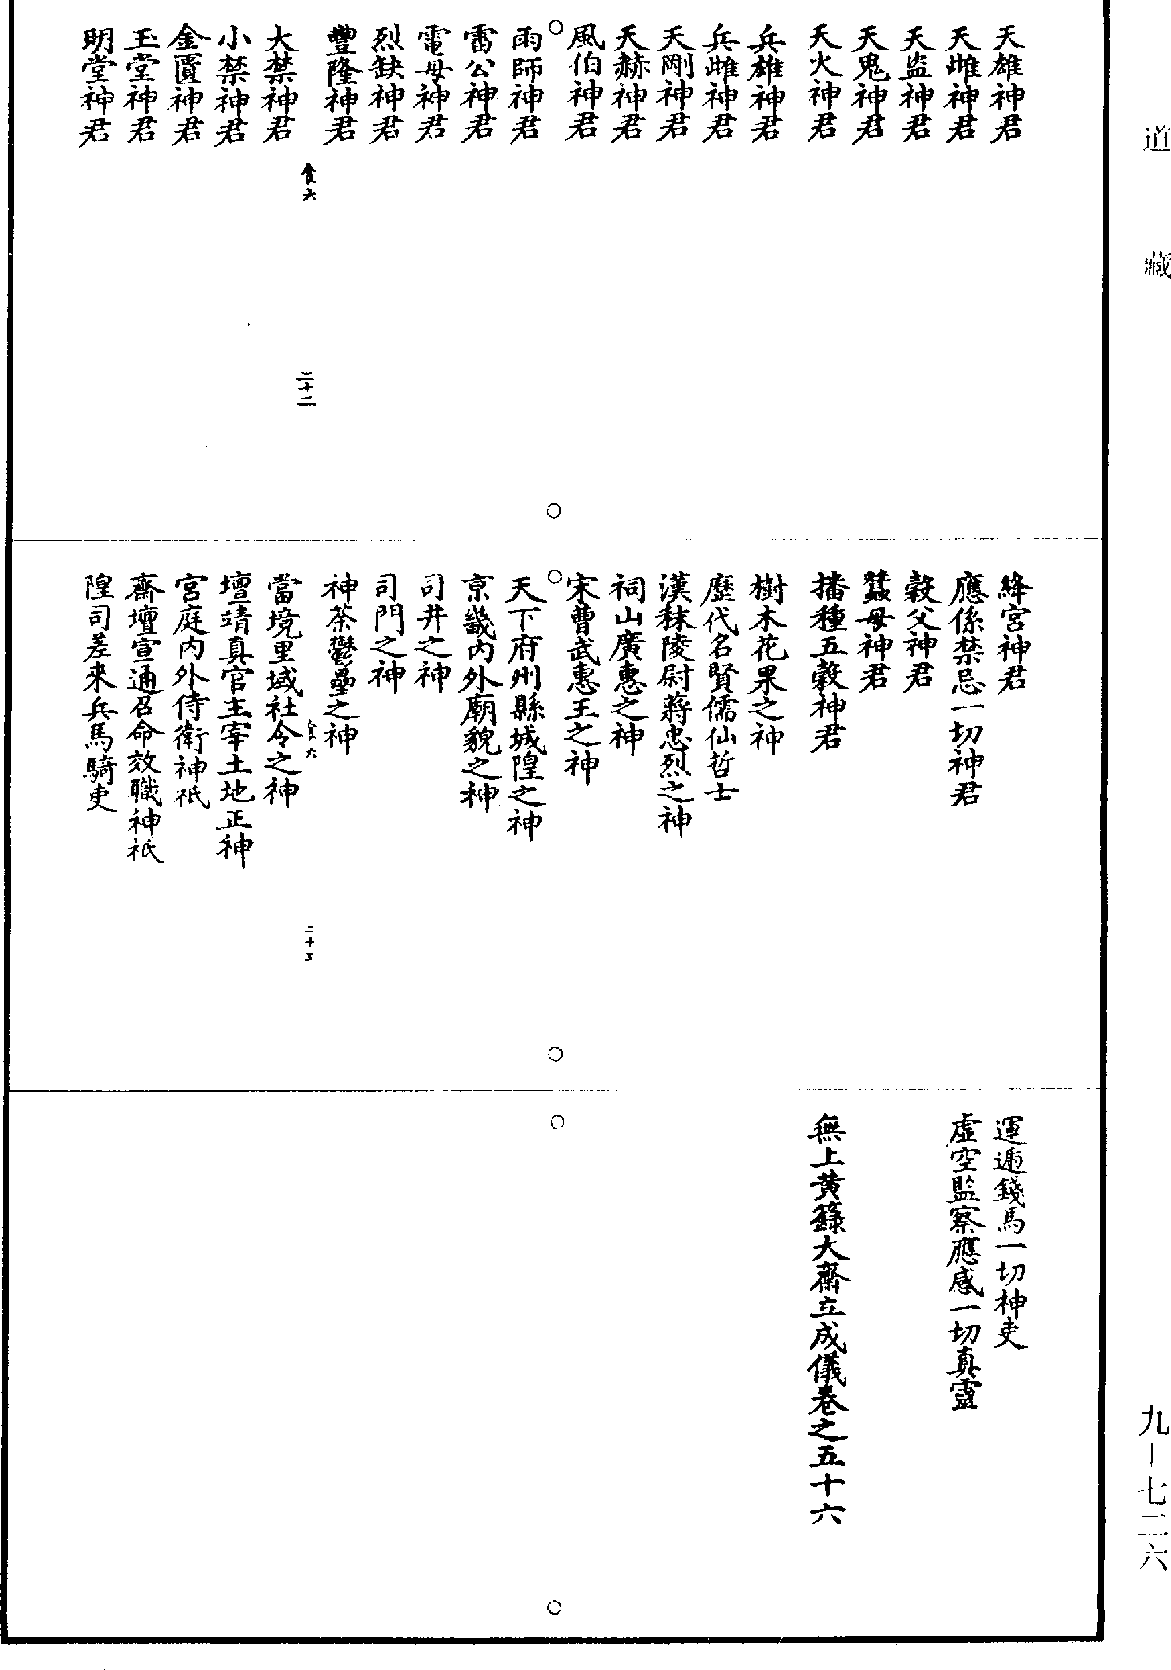 道藏
天雄神君
天雌神君
天盜神君
天鬼神君
天火神君
兵雄神君
兵雌神君
天剛神君
天赫神君
風伯神君
雨師神君
雷公神君
電母神君
烈缺神君
豐隆神君
食六
二十二
大禁神君
小禁神君
金匱神君
玉堂神君
明堂神君
絳宮神君
應係禁忌一切神君
穀父神君
蠶母神君
播種五穀神君
樹木花果之神
歷代名賢儒仙哲士
漢秣陵尉蔣忠烈之神
祠山廣惠之神
宋曹武惠王之神
天下府州縣城隍之神
京畿內外廟貌之神
司井之神
司門之神
神荼鬱壘之神
食六
二十三
當境里域社令之神
壇靖真官主宰土地正神
宮庭內外侍衛神祇
齋壇宣通召命效職神祇
隍司差來兵馬騎吏
運遞錢馬一切神吏
虛空監察應感一切真靈
無上黃籙大齋立成儀卷之五十六
九－七二六